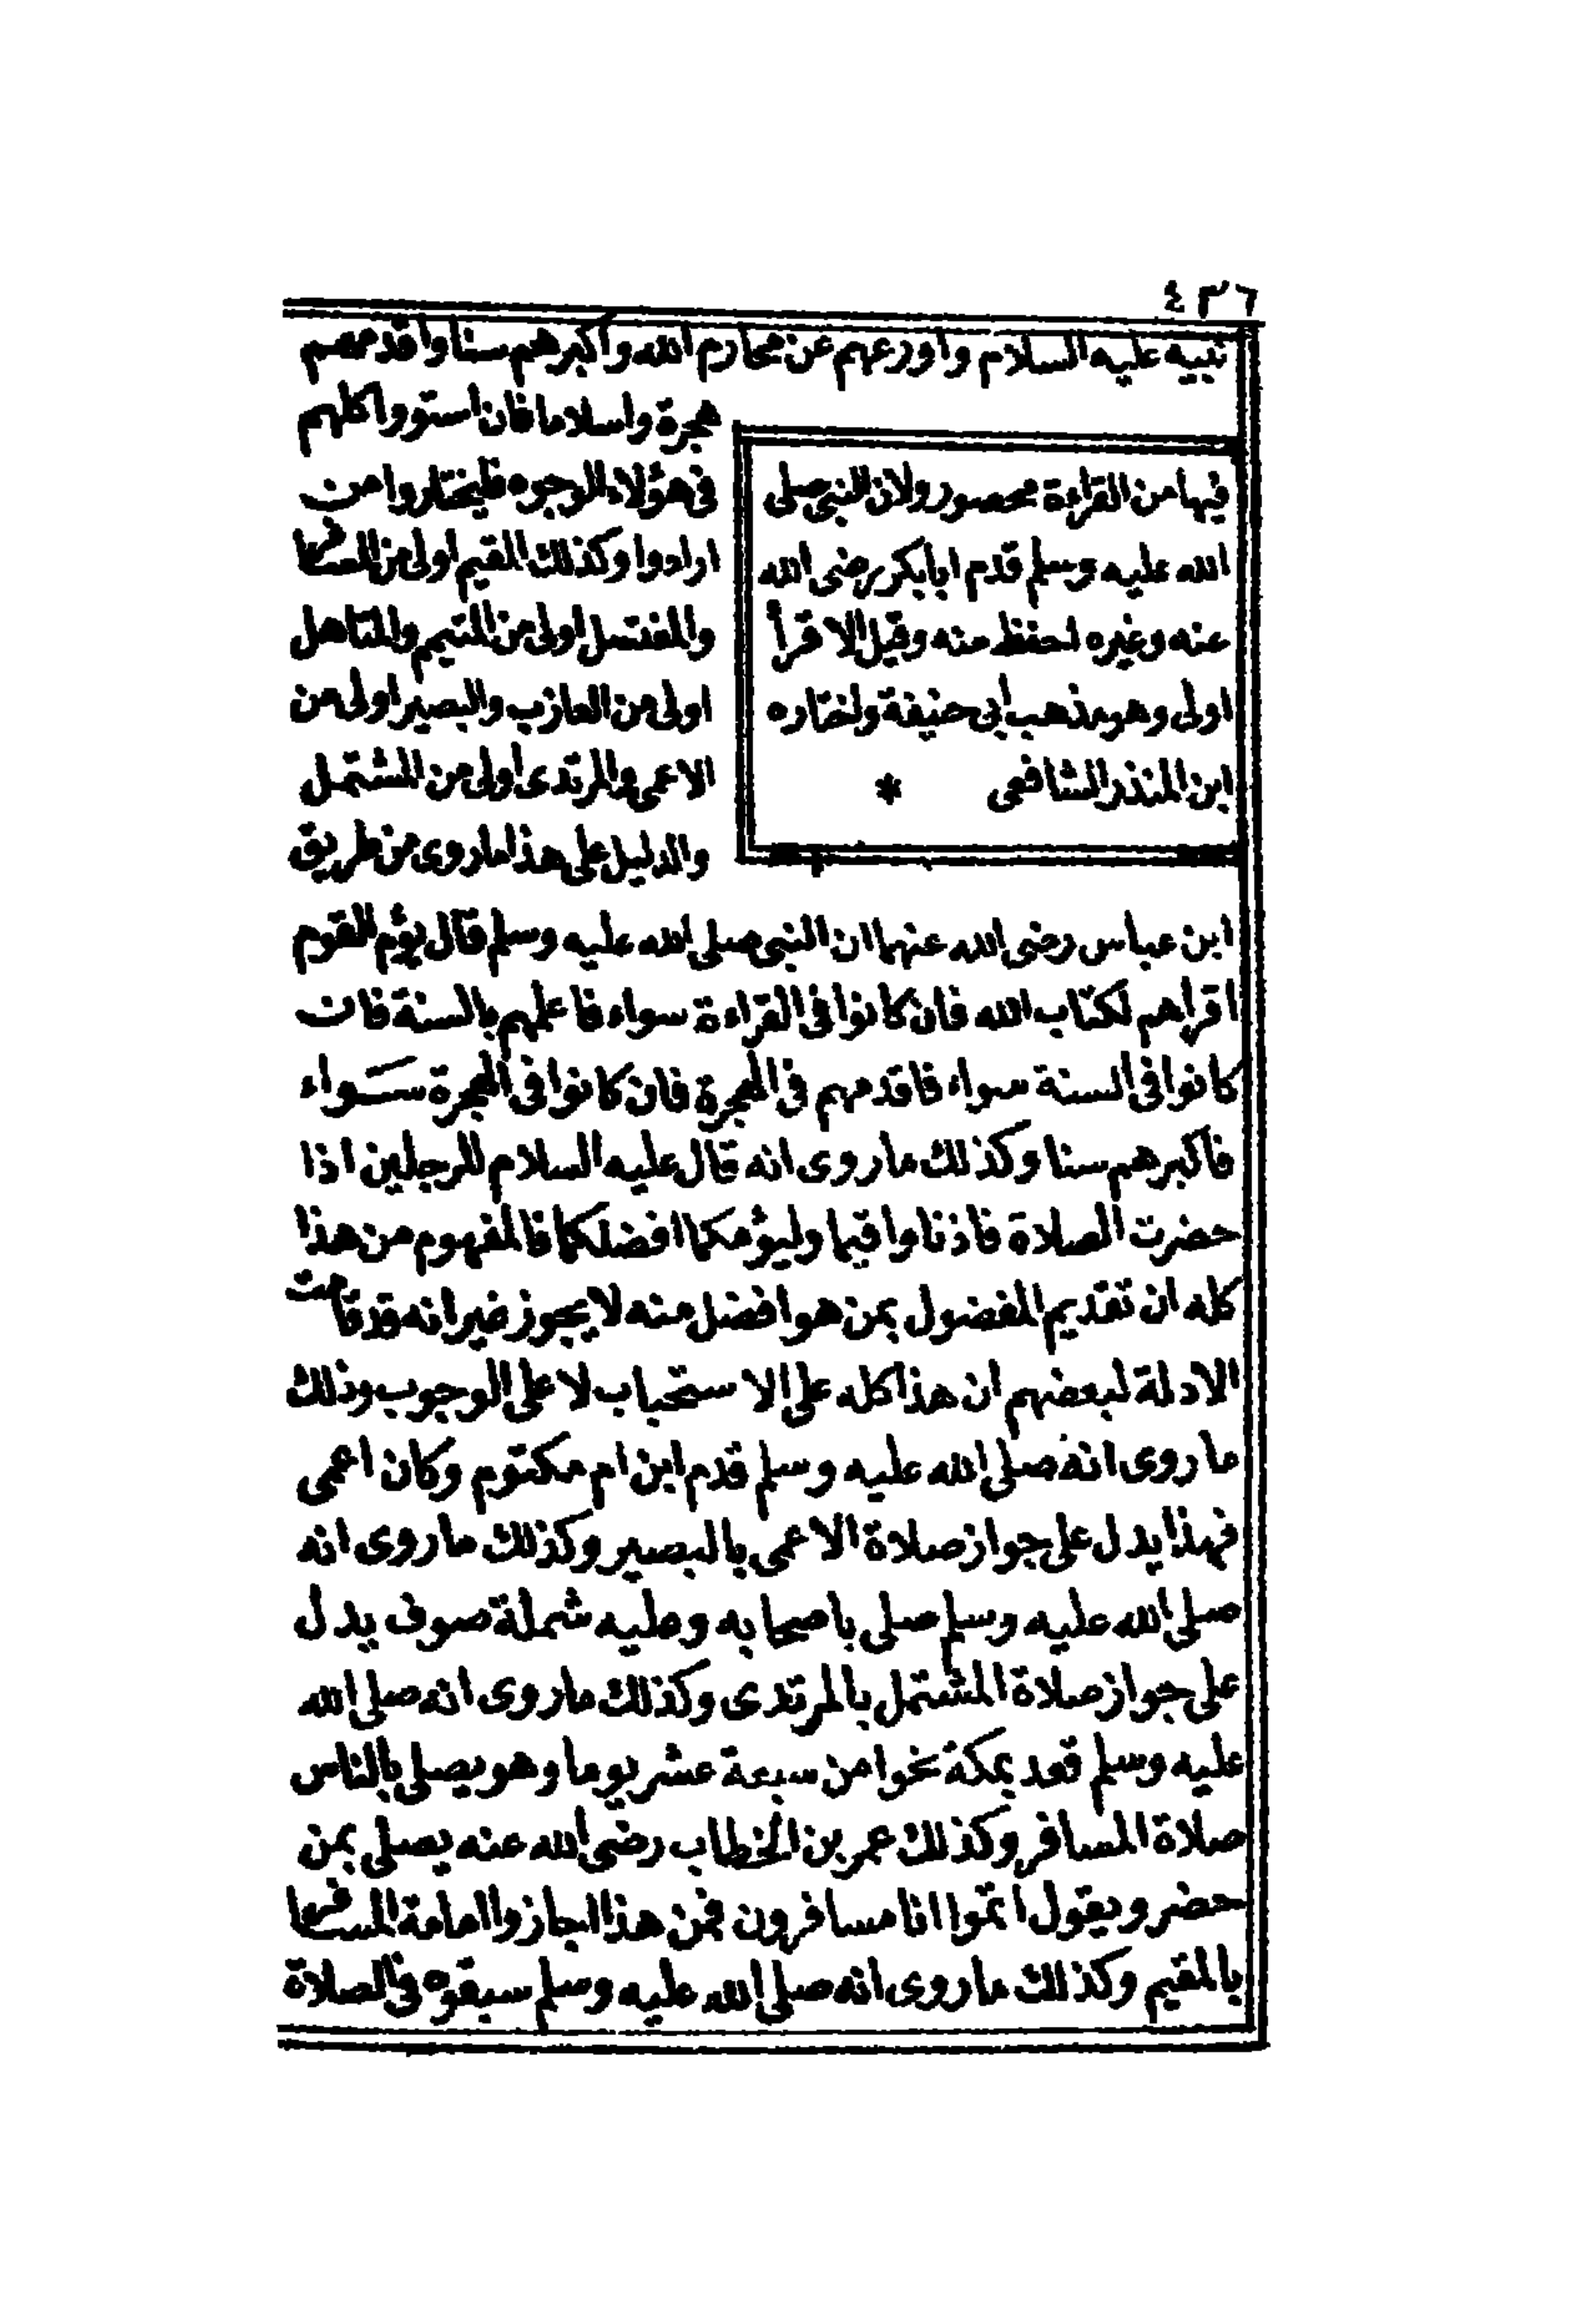 ٤٣٦
نبيه عليه السلام واورعهم عن محارم الله واكبرهم سنا واقدمهم
هجرة واسلاما فان استووا كلهم
في هؤلاء الوجوه فليختاروا من
ارادوا وكذلك المقيم اولى من المسافر
والمغتسل اولى من المتيمم والمتاهل
اولى من العازب والبصير اولى من
الاعمى والمرتدى اولى من المشتمل
والدليل على هذا ما روى من طريق
فيها من القراءة محصور ولان النبي صلى
الله عليه وسلم قدم ابا بكر رضى الله
عنه وغيره احفظ منه وقيل الاقرأ
اولى وهو مذهب أبي حنيفة واختاره
ابن المنذر الشافعى *
ابن عباس رضى الله عنهما ان النبي صلى الله عليه وسلم قال يؤم القوم
اقراهم لكتاب الله فان كانوا في القراءة سواء فاعلمهم بالسنة فان
كانوا في السنة سواء فاقدمهم في الهجرة فان كانوا في الهجرة سواء
فاكبرهم سنا وكذلك ما روى انه قال عليه السلام للرجلين اذا
حضرت الصلاة فاذنا واقيما وليؤمكما افضلكما فالمفهوم من هذا
كله ان تقديم المفضول بمن هو افضل منه لا يجوز غير انه قد قامت
الادلة لبعضهم ان هذا كله على الاستحباب لا على الوجوب وذلك
ما روى انه صلى الله عليه وسلم قدم ابن ام مكتوم وكان اعمى
فهذا يدل على جواز صلاة الاعمى بالبصير وكذلك ما روى انه
صلى الله عليه وسلم صلى باصحابه وعليه شملة صوف يدل
على جواز صلاة المشتمل بالمرتدى وكذلك ما روى انه صلى الله
عليه وسلم قعد بمكة نحوا من سبعة عشر يوما وهو يصلى بالناس
صلاة المسافر وكذلك عمر بن الخطاب رضى الله عنه يصلى بمن
حضر ويقول اتموا انا مسافرون فمن هذا اجازوا امامة المسافر
بالمقيم وكذلك ما روى انه صلى الله عليه وسلم سبقوه في الصلاة